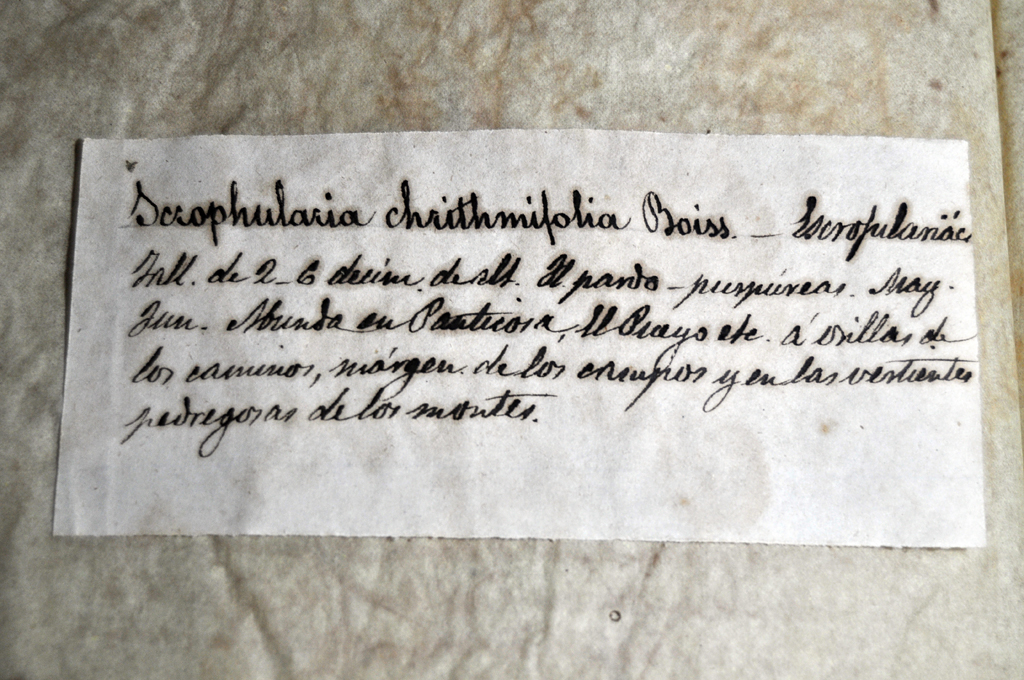 Scrophularia chrithmifolia Boiss. — Escrofulariác
Tall. de 2-6 decím. de alt. Fl pardo-purpúreas. May.
Jun. Abunda en Panticosa, El Pueyo etc. á orillas de
los caminos, márgen. de los campos y en las vertientes
pedregosas de los montes.